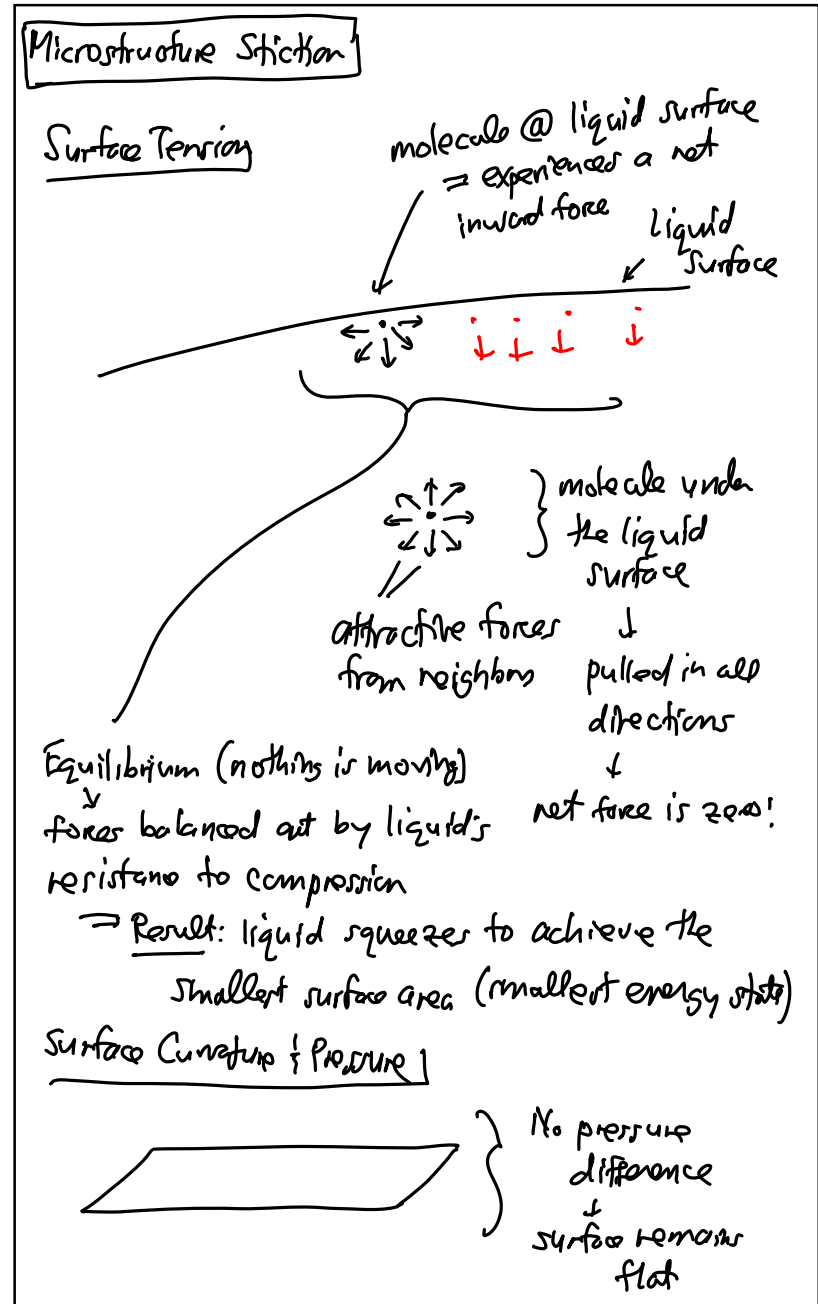 Microstructure Stiction
Surface Tension
molecule @ liquid surface
⇒ experiences a net
inward force
liquid
surface
molecule under
the liquid
surface
↓
pulled in all
directions
↓
net force is zero!
attractive forces
from neighbors
Equilibrium (nothing is moving)
↓
forces balanced out by liquid's
resistance to compression
⇒ Result: liquid squeezes to achieve the
smallest surface area (smallest energy state)
Surface Curvature & Pressure
No pressure
difference
↓
surface remains
flat